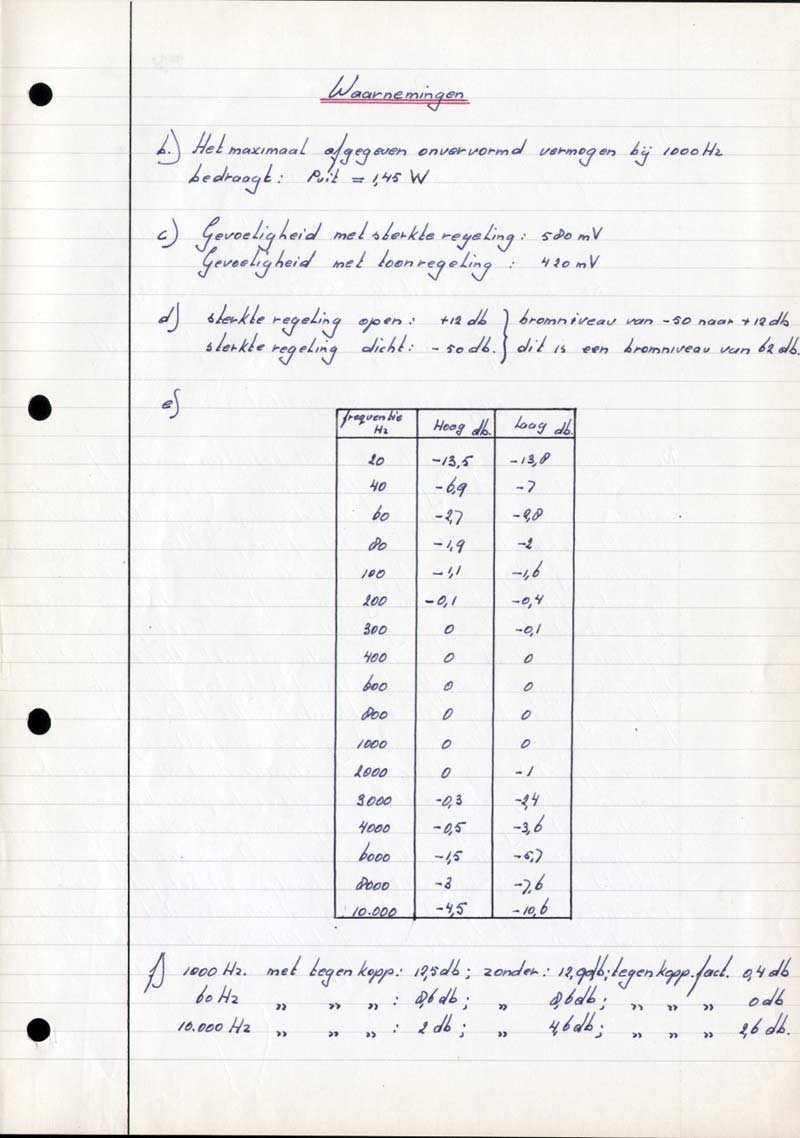 Waarnemingen
b.) Het maximaal afgegeven onvervormd vermogen bij 1000 Hz
bedraagt: Puit = 1,45 W
c) Gevoeligheid met sterkte regeling: 580 mV
Gevoeligheid met toonregeling : 420 mV
d) sterkte regeling open: +12 db } bromniveau van -50 naar +12 db
sterkte regeling dicht: -50 db. } dit is een bromniveau van 62 db.
e)
frequentie Hz Hoog db. Laag db.
20 -13,5 -13,8
40 -6,9 -7
60 -2,7 -2,8
80 -1,9 -2
100 -1,1 -1,6
200 -0,1 -0,4
300 0 -0,1
400 0 0
600 0 0
800 0 0
1000 0 0
2000 0 -1
3000 -0,3 -2,4
4000 -0,5 -3,6
6000 -1,5 -5,7
8000 -3 -7,6
10.000 -4,5 -10,6
f) 1000 Hz. met tegenkopp.: 12,5 db; zonder: 12,9 db; tegenkopp. fact. 0,4 db
60 Hz „ „ „ : 8,6 db; „ 8,6 db; „ „ „ 0 db
10.000 Hz „ „ „ : 2 db; „ 4,6 db; „ „ „ 2,6 db.